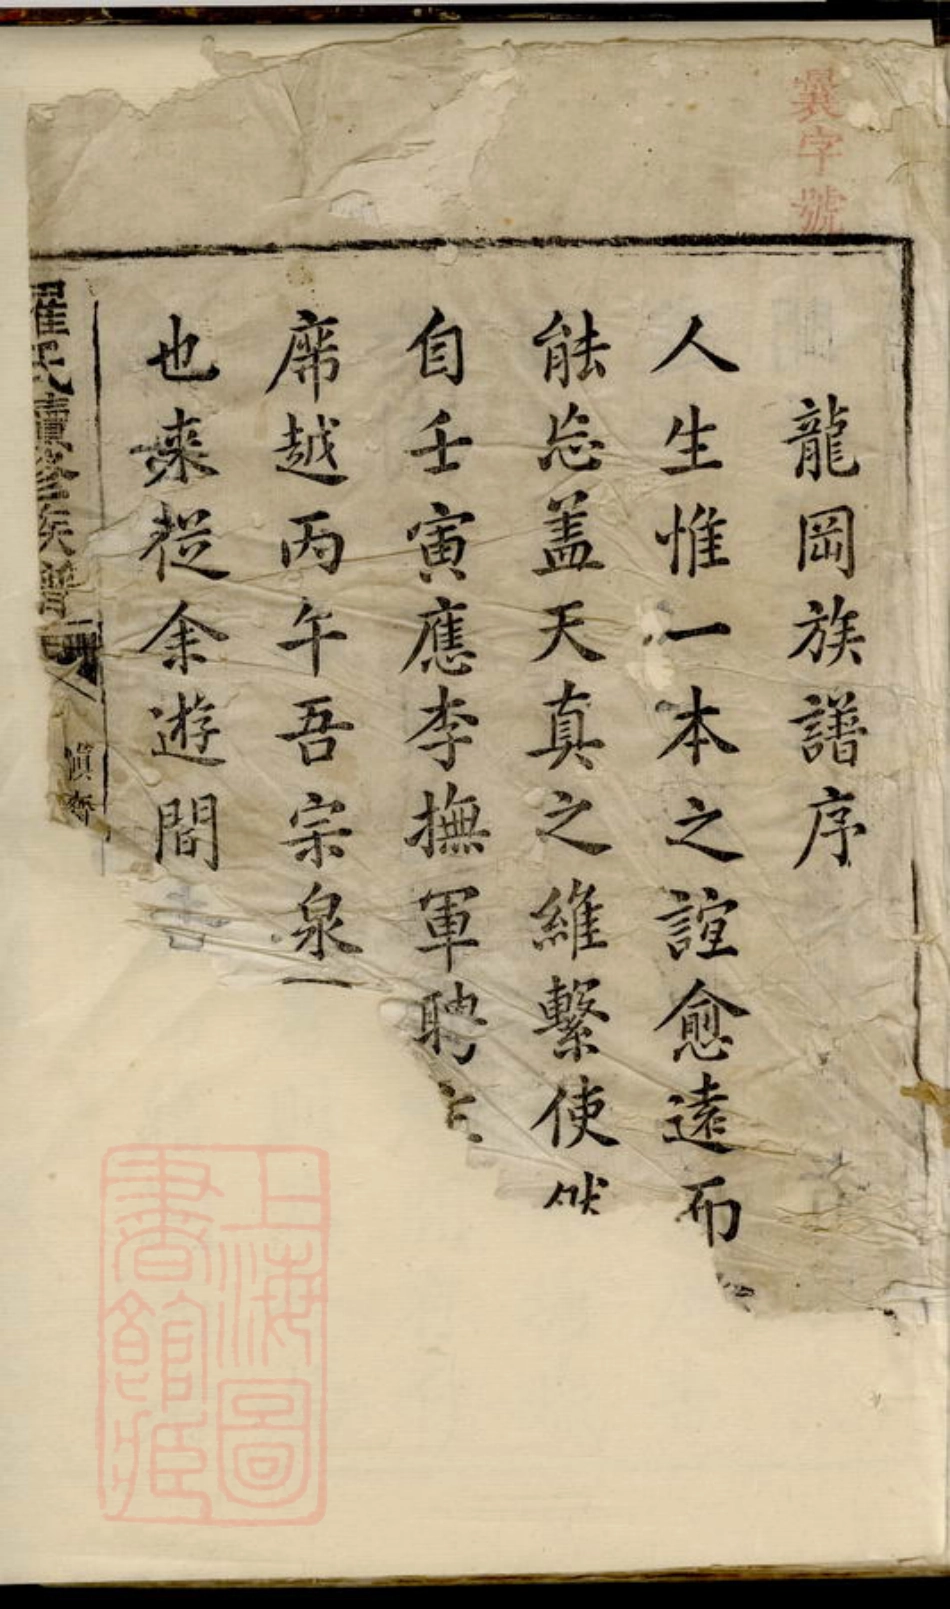 曩字號
龍岡族譜序
人生惟一本之誼愈遠而
能忘盖天真之維繫使然
自壬寅應李撫軍聘
席越丙午吾宗泉
也来從余遊間
羅氏續修族譜
上海圖書館藏